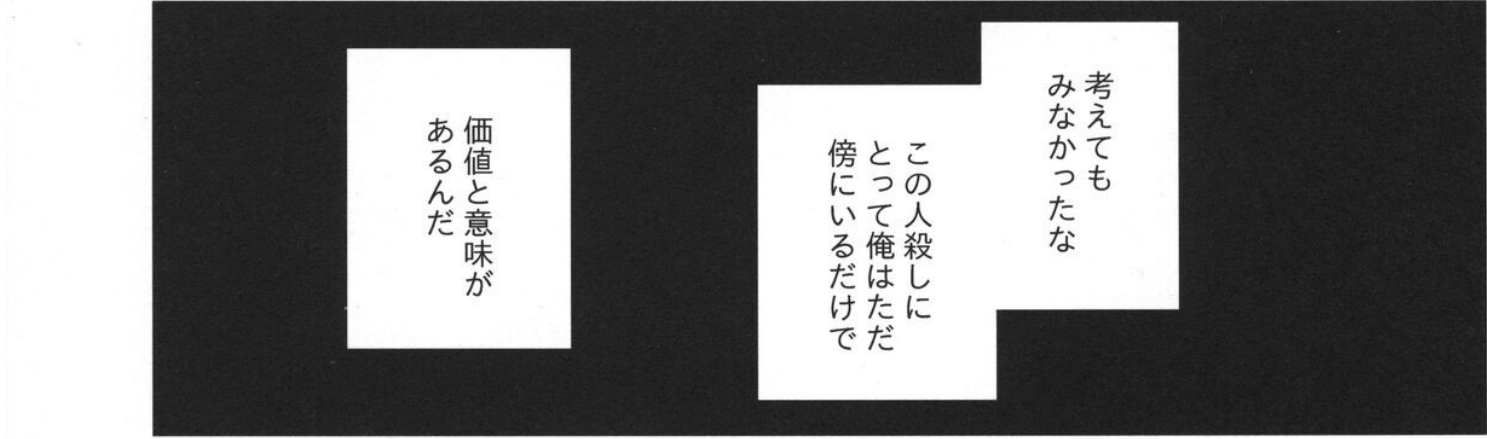 考えても
みなかったな
この人殺しに
とって俺はただ
傍にいるだけで
価値と意味が
あるんだ